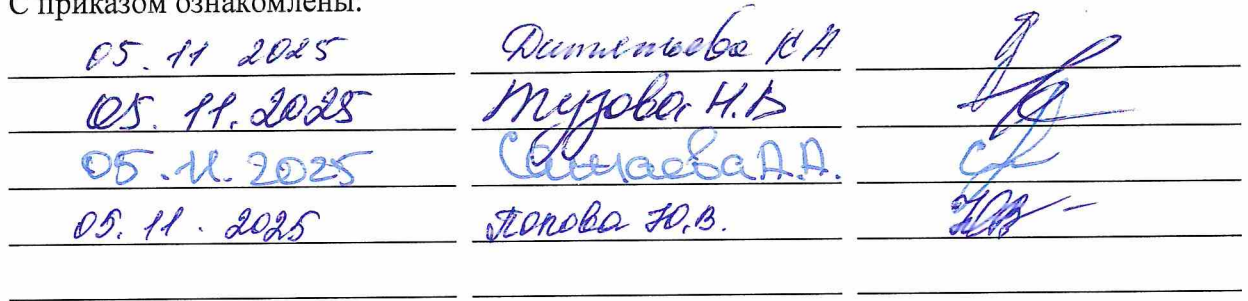 С приказом ознакомлены:
05.11 2025 К А
05.11.2025 Тузова Н.В
05.11.2025 А.А.
05.11.2025 Попова Ю.В.